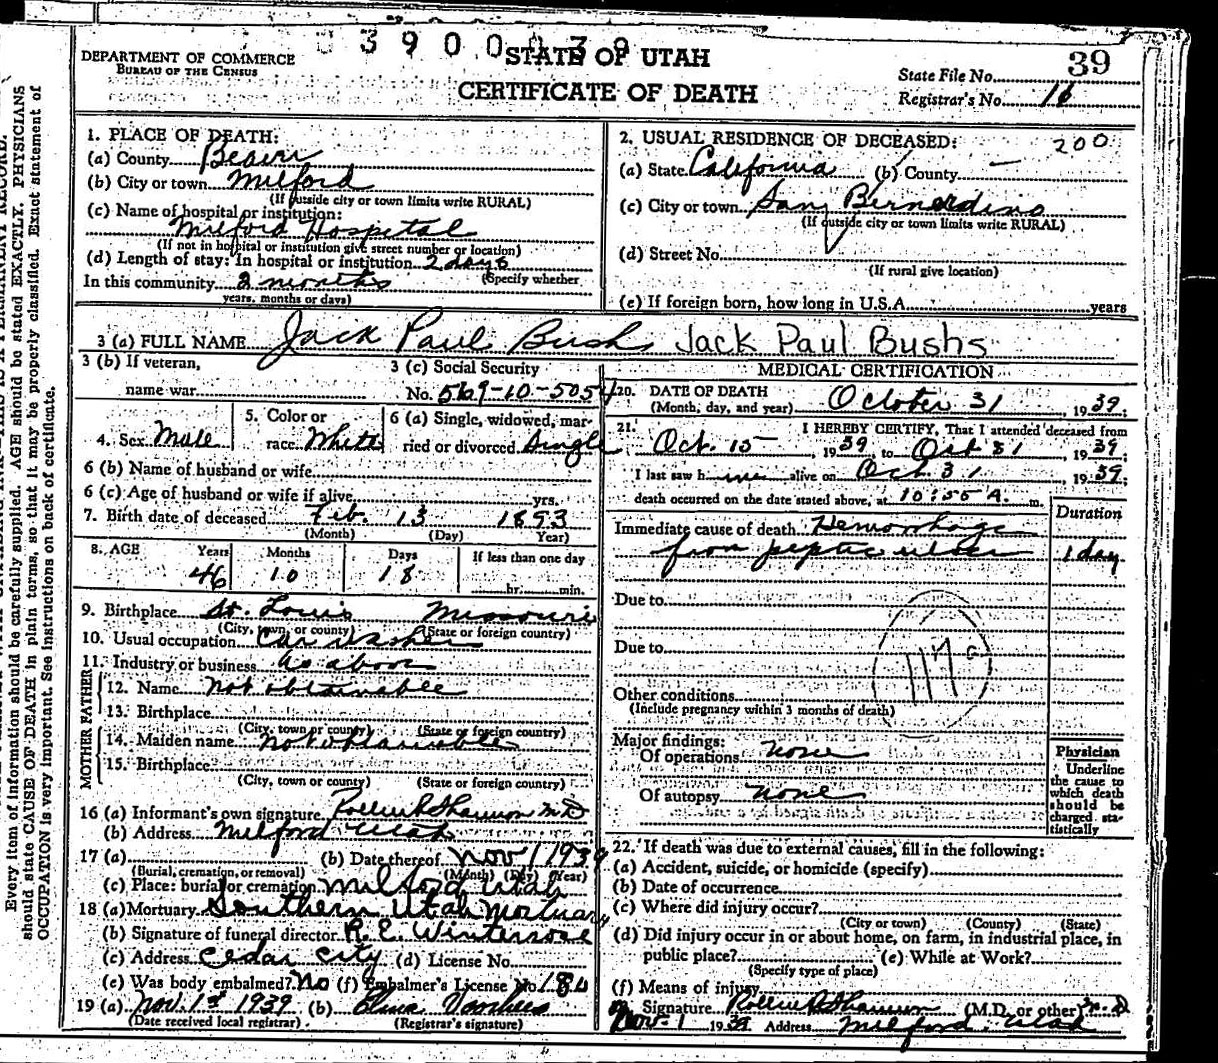 3900039
DEPARTMENT OF COMMERCE
BUREAU OF THE CENSUS
STATE OF UTAH
CERTIFICATE OF DEATH
39
State File No.
Registrar's No. 16
1. PLACE OF DEATH:
(a) County Beaver
(b) City or town Milford
(If outside city or town limits write RURAL)
(c) Name of hospital or institution:
Milford Hospital
(If not in hospital or institution give street number or location)
(d) Length of stay: In hospital or institution 2 days
(Specify whether
In this community 2 months
years, months or days)
2. USUAL RESIDENCE OF DECEASED: 200
(a) State California (b) County —
(c) City or town San Bernardino
(If outside city or town limits write RURAL)
(d) Street No.
(If rural give location)
(e) If foreign born, how long in U.S.A. years
3 (a) FULL NAME Jack Paul Bush Jack Paul Bushs
3 (b) If veteran,
name war
3 (c) Social Security
No. 569-10-5054
4. Sex Male
5. Color or
race White
6 (a) Single, widowed, mar-
ried or divorced Single
6 (b) Name of husband or wife
6 (c) Age of husband or wife if alive yrs.
7. Birth date of deceased Feb. 13 1893
(Month) (Day) Year)
8. AGE Years Months Days If less than one day
46 10 18 hr. min.
9. Birthplace St. Louis Missouri
(City, town, or county) (State or foreign country)
10. Usual occupation Car Washer
11. Industry or business As above
FATHER
12. Name Not obtainable
13. Birthplace
(City, town or county) (State or foreign country)
MOTHER
14. Maiden name Not obtainable
15. Birthplace
(City, town or county) (State or foreign country)
16 (a) Informant's own signature M D
(b) Address Milford Utah
17 (a) (b) Date thereof Nov 1 1939
(Burial, cremation, or removal) (Month) (Day) (Year)
(c) Place: burial or cremation Milford, Utah
18 (a) Mortuary Southern Utah Mortuary
(b) Signature of funeral director R. E.
(c) Address Cedar City (d) License No.
(e) Was body embalmed? No (f) Embalmer's License No.
19 (a) Nov. 1st 1939 (b) Voorhees
(Date received local registrar) (Registrar's signature)
MEDICAL CERTIFICATION
20. DATE OF DEATH
(Month, day, and year) October 31 1939;
21. I HEREBY CERTIFY, That I attended deceased from
Oct. 15 1939 to Oct 31, 1939,
I last saw him alive on Oct 31 1939;
death occurred on the date stated above, at 10:55 A. m.
Duration
Immediate cause of death Hemorrhage
from peptic ulcer 1 day
Due to
Due to
117
Other conditions
(Include pregnancy within 3 months of death)
Major findings:
Of operations none
Of autopsy none
Physician
Underline
the cause to
which death
should be
charged sta-
tistically
22. If death was due to external causes, fill in the following:
(a) Accident, suicide, or homicide (specify)
(b) Date of occurrence
(c) Where did injury occur?
(City or town) (County) (State)
(d) Did injury occur in or about home, on farm, in industrial place, in
public place? (e) While at Work?
(Specify type of place)
(f) Means of injury
Signature (M.D. or other) M. D
Nov. 1 1939 Address Milford, Utah
Every item of information should be carefully supplied. AGE should be stated EXACTLY. PHYSICIANS
should state CAUSE OF DEATH in plain terms, so that it may be properly classified. Exact statement of
OCCUPATION is very important. See instructions on back of certificate.